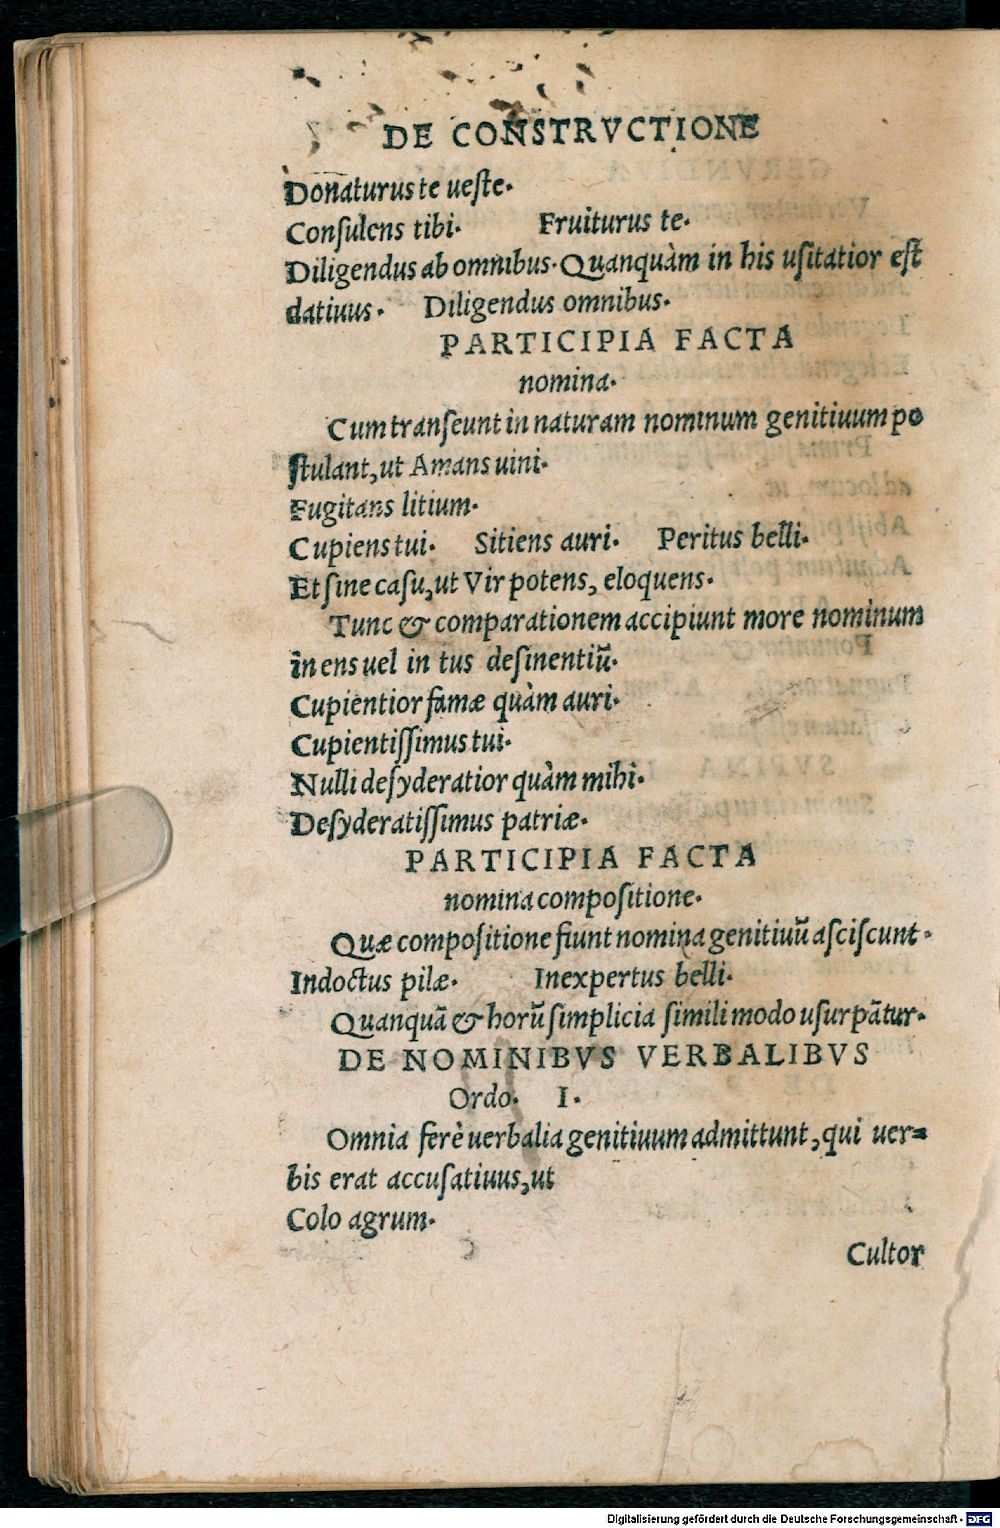 DE CONSTRVCTIONE
Donaturus te ueſte.
Conſulens tibi. Fruiturus te.
Diligendus ab omnibus. Quanquàm in his uſitatior eſt
datiuus. Diligendus omnibus.
PARTICIPIA FACTA
nomina.
Cum tranſeunt in naturam nominum genitiuum po
ſtulant, ut Amans uini.
Fugitans litium.
Cupiens tui. Sitiens auri. Peritus belli.
Et ſine caſu, ut Vir potens, eloquens.
Tunc & comparationem accipiunt more nominum
in ens uel in tus deſinentiū.
Cupientior famæ quàm auri.
Cupientiſſimus tui.
Nulli deſyderatior quàm mihi.
Deſyderatiſſimus patriæ.
PARTICIPIA FACTA
nomina compoſitione.
Quæ compoſitione fiunt nomina genitiuū aſciſcunt.
Indoctus pilæ. Inexpertus belli.
Quanquā & horū ſimplicia ſimili modo uſurpātur.
DE NOMINIBVS VERBALIBVS
Ordo. I.
Omnia ferè uerbalia genitiuum admittunt, qui uer=
bis erat accuſatiuus, ut
Colo agrum.
Cultor
Digitalisierung gefördert durch die Deutsche Forschungsgemeinschaft - DFG